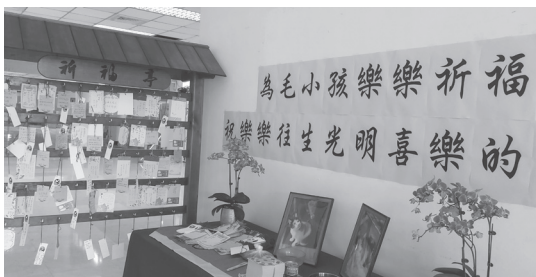 祈福亭
為毛小孩樂樂祈福
祝樂樂往生光明喜樂的